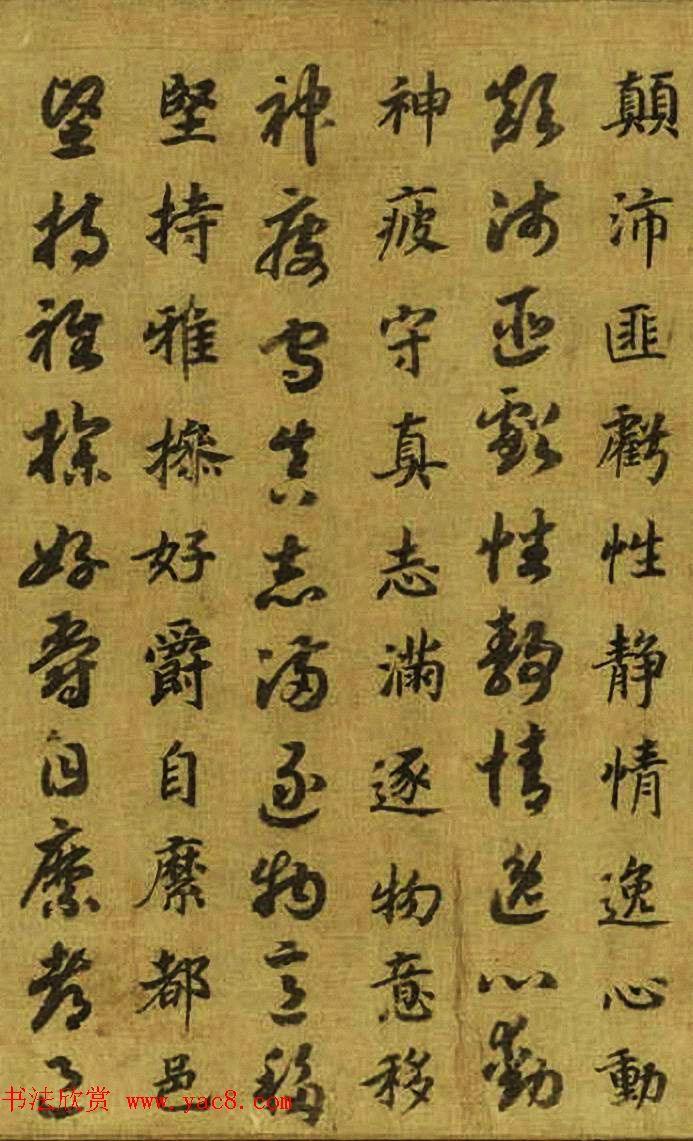 顛沛匪虧性靜情逸心動
顛沛匪虧性靜情逸心動
神疲守真志滿逐物意移
神疲守真志滿逐物意移
堅持雅操好爵自縻都邑
堅持雅操好爵自縻都邑
书法欣赏 www.yac8.com